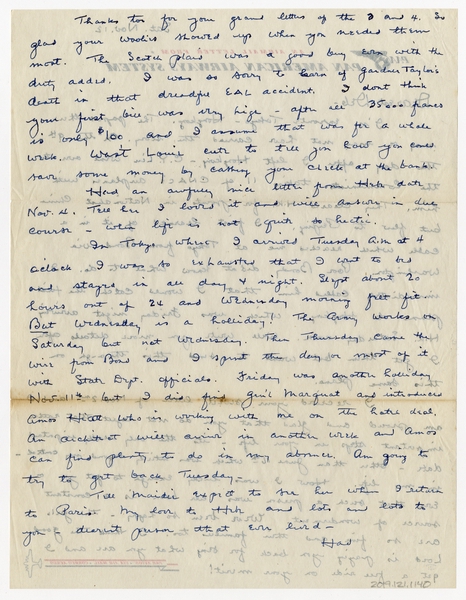 Thanks too for your grand letters of the 3 and 4. So
glad your woolies showed up when you needed them
most. The Scotch plaid was a good buy even with the
duty added. I was so sorry to learn of Gardner Taylor's
death in that dreadful EAL accident. I dont think
your first bill was very high - after all 35000 francs
is only $100 and I assume that was for a whole
week. Wasn't Louie cute to tell you how you could
save some money by cashing your check at the bank.
Had an awfully nice letter from Hrh date
Nov. 4. Tell her I loved it and will answer in due
course - when life is not quite so hectic.
In Tokyo where I arrived Tuesday A.M. at 4
o'clock I was so exhausted that I went to bed
and stayed in all day & night. Slept about 20
hours out of 24 and Wednesday morning felt fit.
But Wednesday is a holiday! The Army works on
Saturday but not Wednesday. Then Thursday came the
wire from Bond and I spent the day or most of it
with State Dept. officials. Friday was another holiday
Nov. 11th but I did find Gen'l Marquat and introduced
Amos Hiatt who is working with me on the hotel deal.
An architect will arrive in another week and Amos
can find plenty to do in my absence. Am going to
try to get back Tuesday.
Tell Maidie expect to see her when I return
to Paris. My love to Hrh and lots and lots to
you dearest person that ever lived -
Had
2019.121.1140